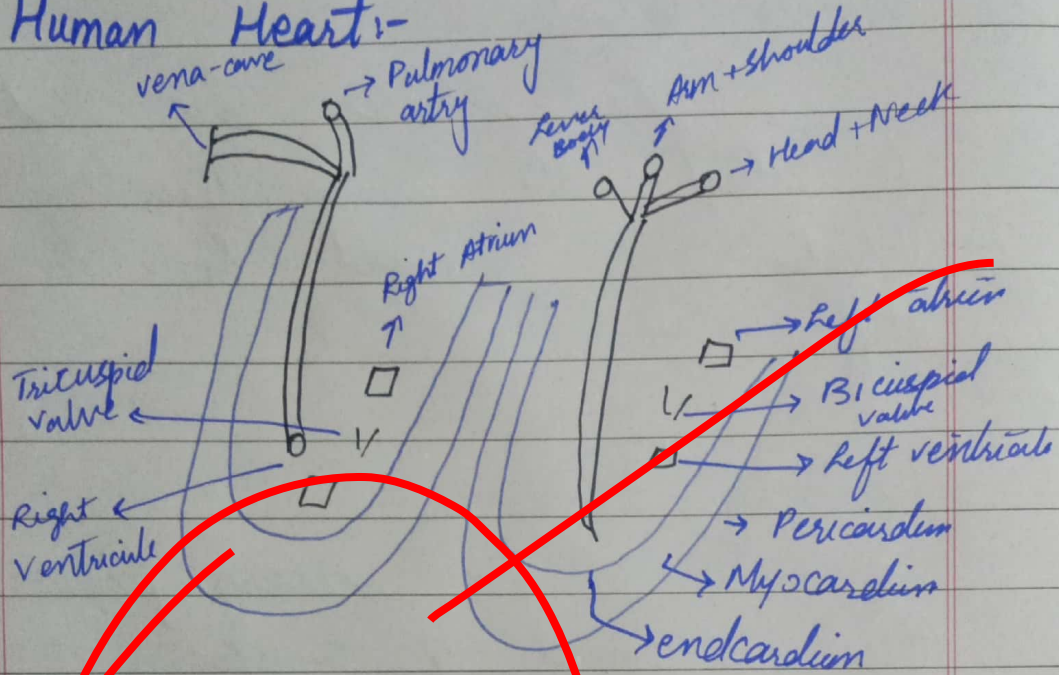 Human Heart:-
vena-cave
Pulmonary
artry
Arm + shoulder
Lower
Body
Head + Neck
Right Atrium
Left atrium
Tricuspid
valve
Bicuspid
valve
Left ventricule
Right
ventricule
Pericardium
Myocardium
endcardium